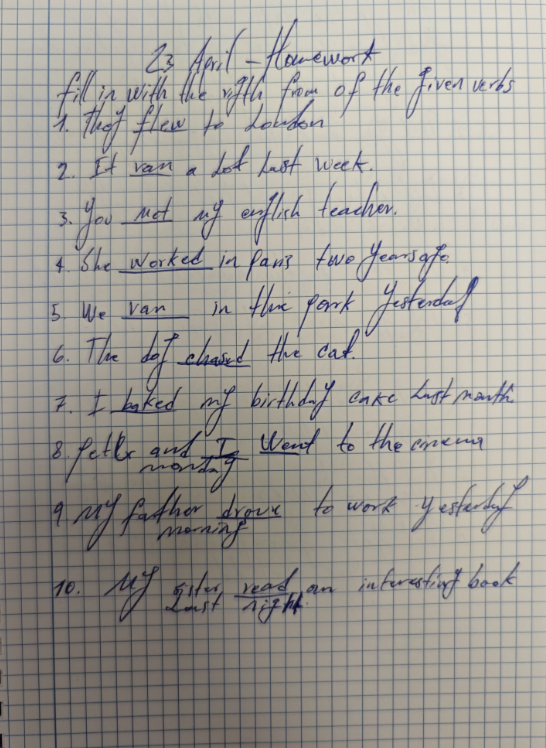 23 April - Homework
fill in with the rigth from of the given verbs
1. They flew to London
2. It van a Lot Last week.
3. You met my english teacher.
4. She worked in paris two years ago.
5 We van in the park Yesterday
6. The dog chased the cat.
7. I baked my birthday cake Last month
8. and I Went to the cinema
monday
9 My father drove to work yesterday
morning
10. My sister read an interesting book
Last night